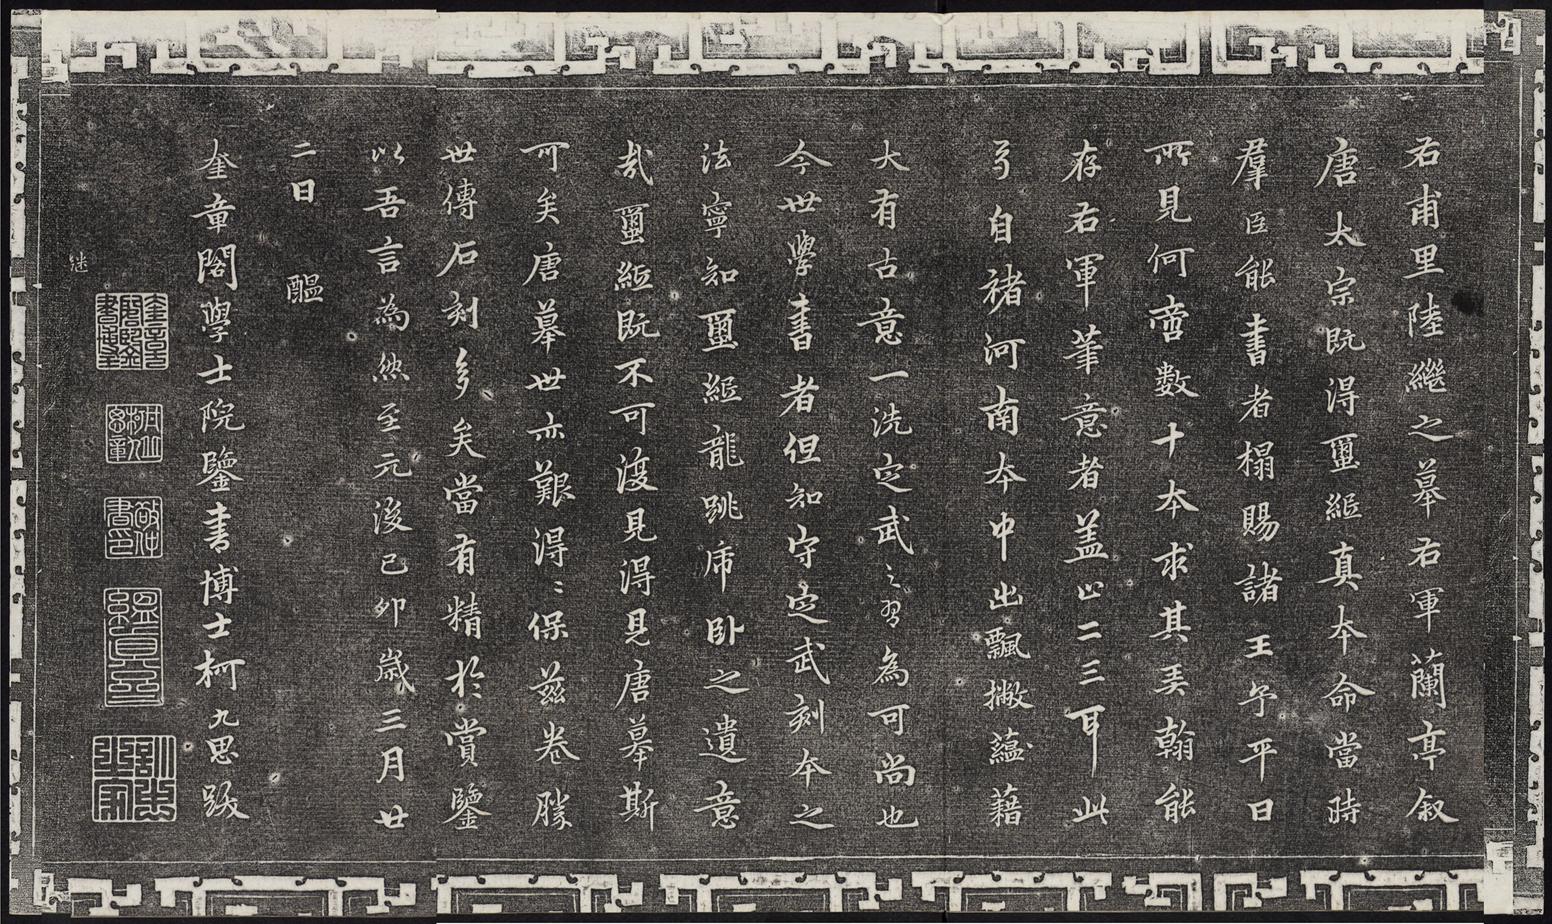 右甫里陸繼之摹右軍蘭亭叙
唐太宗既得璽紙真本命當時
羣臣能書者榻賜諸王予平日
所見何啻數十本求其弄翰能
存右軍筆意者盖止二三耳此
多自褚河南本中出飄撇蘊藉
大有古意一洗定武之習為可尚也
今世學書者但知守定武刻本之
法寧知璽紙龍跳虎臥之遺意
哉璽紙既不可復見得見唐摹斯
可矣唐摹世亦艱得得保茲卷勝
世傳石刻多矣當有精於賞鑒
以吾言為然至元後己卯歲三月廿
二日 醞
奎章閣學士院鑒書博士柯九思跋